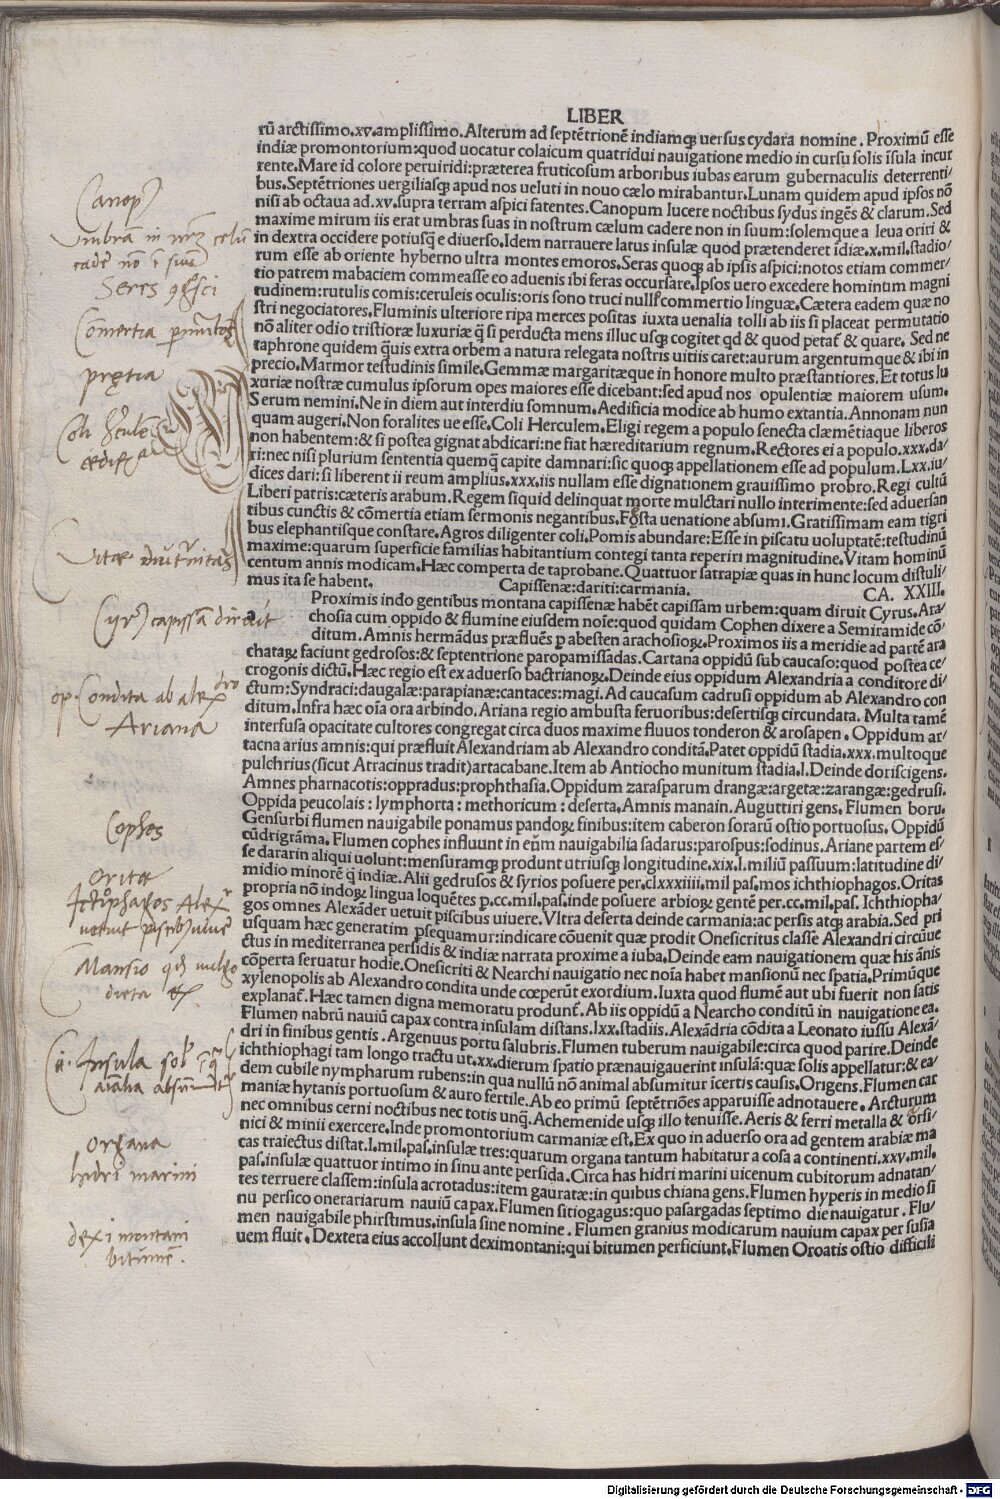 LIBER
rū arctissimo.xv.amplissimo.Alterum ad septētrionē indiamq; uersus cydara nomine. Proximū esse
indiæ promontorium:quod uocatur colaicum quatridui nauigatione medio in cursu solis īsula incur
rente.Mare id colore peruiridi:præterea fruticosum arboribus iubas earum gubernaculis deterrenti/
bus.Septētriones uergiliasq; apud nos ueluti in nouo cælo mirabantur.Lunam quidem apud ipsos nō
nisi ab octaua ad.xv.supra terram aspici fatentes.Canopum lucere noctibus sydus ingēs & clarum.Sed
maxime mirum iis erat umbras suas in nostrum cælum cadere non in suum:solemque a leua oriri &
in dextra occidere potiusq̄ e diuerso.Idem narrauere latus insulæ quod prætenderet īdiæ.x.mil.stadio/
rum esse ab oriente hyberno ultra montes emoros.Seras quoq; ab ipsis aspici:notos etiam commer/
tio patrem mabaciem commeasse eo aduenis ibi feras occursare.Ipsos uero excedere hominum magni
tudinem:rutulis comis:ceruleis oculis:oris sono truci nullo commertio linguæ.Cætera eadem quæ no
stri negociatores.Fluminis ulteriore ripa merces positas iuxta uenalia tolli ab iis si placeat permutatio
nō aliter odio tristioræ luxuriæ q̄ si perducta mens illuc usq; cogitet qd & quod petat & quare. Sed ne
taphrone quidem q̄uis extra orbem a natura relegata nostris uitiis caret:aurum argentumque & ibi in
precio.Marmor testudinis simile.Gemmæ margaritæque in honore multo præstantiores.Et totus lu
xuriæ nostræ cumulus ipsorum opes maiores esse dicebant:sed apud nos opulentiæ maiorem usum.
Serum nemini.Ne in diem aut interdiu somnum.Aedificia modice ab humo extantia.Annonam nun
quam augeri.Non foralites ue esse.Coli Herculem.Eligi regem a populo senecta clæmētiaque liberos
non habentem:& si postea gignat abdicari:ne fiat hæreditarium regnum.Rectores ei a populo.xxx.da/
ri:nec nisi plurium sententia quemq̄ capite damnari:sic quoq; appellationem esse ad populum.Lxx.iu/
dices dari:si liberent ii reum amplius.xxx.iis nullam esse dignationem grauissimo probro.Regi cultū
Liberi patris:cæteris arabum.Regem siquid delinquat morte mulctari nullo interimente:sed aduersan
tibus cunctis & cōmertia etiam sermonis negantibus.Festa uenatione absumi.Gratissimam eam tigri
bus elephantisque constare.Agros diligenter coli.Pomis abundare:Esse in piscatu uoluptatē:testudinū
maxime:quarum superficie familias habitantium contegi tanta reperiri magnitudine.Vitam hominū
centum annis modicam.Hæc comperta de taprobane.Quattuor satrapiæ quas in hunc locum distuli/
mus ita se habent. Capissenæ:dariti:carmania. CA. XXIII.
Proximis indo gentibus montana capissenæ habēt capissam urbem:quam diruit Cyrus.Ara/
a chosia cum oppido & flumine eiusdem noīe:quod quidam Cophen dixere a Semiramide cō/
ditum.Amnis hermādus præfluēs p abesten arachosioꝝ.Proximos iis a meridie ad partē ara
chataꝝ faciunt gedrosos:& septentrione paropamissadas.Cartana oppidū sub caucaso:quod postea ce/
crogonis dictū.Hæc regio est ex aduerso bactrianoꝝ.Deinde eius oppidum Alexandria a conditore di/
ctum:Syndraci:daugalæ:parapianæ:cantaces:magi.Ad caucasum cadrusi oppidum ab Alexandro con
ditum.Infra hæc oīa ora arbindo.Ariana regio ambusta feruoribus:desertisq; circundata. Multa tamē
interfusa opacitate cultores congregat circa duos maxime fluuos tonderon & arosapen. Oppidum ar/
tacna arius amnis:qui præfluit Alexandriam ab Alexandro conditā.Patet oppidū stadia.xxx.multoque
pulchrius(sicut Atracinus tradit)artacabane.Item ab Antiocho munitum stadia.l.Deinde doriscigens.
Amnes pharnacotis:oppradus:prophthasia.Oppidum zarasparum drangæ:argetæ:zarangæ:gedrusi.
Oppida peucolais : lymphorta : methoricum : deserta.Amnis manain. Auguttiri gens. Flumen boru.
Gensurbi flumen nauigabile ponamus pandoꝝ finibus:item caberon sorarū ostio portuosus. Oppidū
cūdrigrāma. Flumen cophes influunt in eūm nauigabilia sadarus:parospus:sodinus. Ariane partem es/
se dararin aliqui uolunt:mensuramq; produnt utriusq; longitudine.xix.l.miliū passuum:latitudine di/
midio minorē q̄ indiæ.Alii gedrusos & syrios posuere per.clxxxiiii.mil pas.mos ichthiophagos.Oritas
propria nō indoꝝ lingua loquētes p.cc.mil.pas.inde posuere arbioꝝ gentē per.cc.mil.pas. Ichthiopha/
gos omnes Alexāder uetuit piscibus uiuere. Vltra deserta deinde carmania:ac persis atq; arabia.Sed pri
usquam hæc generatim psequamur:indicare cōuenit quæ prodit Onesicritus classe Alexandri circūue
ctus in mediterranea persidis & indiæ narrata proxime a iuba.Deinde eam nauigationem quæ his ānis
cōperta seruatur hodie.Onesicriti & Nearchi nauigatio nec noīa habet mansionū nec spatia.Primūque
xylenopolis ab Alexandro condita unde cœperūt exordium. Iuxta quod flumē aut ubi fuerit non satis
explanat.Hæc tamen digna memoratu produnt.Ab iis oppidū a Nearcho conditū in nauigatione ea.
Flumen nabrū nauiū capax contra insulam distans.lxx.stadiis.Alexādria cōdita a Leonato iussu Alexā/
dri in finibus gentis.Argenuus portu salubris.Flumen tuberum nauigabile:circa quod parire.Deinde
ichthiophagi tam longo tractu ut.xx.dierum spatio prænauigauerint insulā:quæ solis appellatur:& ea/
dem cubile nympharum rubens:in qua nullū nō animal absumitur īcertis causis.Origens.Flumen car
maniæ hytanis portuosum & auro fertile.Ab eo primū septētriōes apparuisse adnotauere. Arcturum
nec omnibus cerni noctibus nec totis unq̄.Achemenide usq; illo tenuisse.Aeris & ferri metalla & orsi/
nici & minii exercere.Inde promontorium carmaniæ est.Ex quo in aduerso ora ad gentem arabiæ ma
cas traiectus distat.l.mil.pas.insulæ tres:quarum organa tantum habitatur a cosa a continenti.xxv.mil.
pas.insulæ quattuor intimo in sinu ante persida.Circa has hidri marini uicenum cubitorum adnatan/
tes terruere classem:insula acrotadus:item gauratæ:in quibus chiana gens.Flumen hyperis in medio si
nu persico onerariarum nauiū capax.Flumen sitiogagus:quo pasargadas septimo die nauigatur. Flu/
men nauigabile phirstimus.insula sine nomine. Flumen granius modicarum nauium capax per susia
uem fluit. Dextera eius accollunt deximontani:qui bitumen perficiunt.Flumen Oroatis ostio difficili
Canop9
Vmbrā in nrm celū
cade nō ī suū
Seres
Cōmertia
prętia
Coli Hercule
ædif
Vitæ diuturnitas
Cyr9 capissā diruit
op. Condita ab alexādro
Ariana
Cophes
Oritæ
Icthiophagos Alexr
uetuit piscib9 uiuere
Mansio qd uulgo
dieta
Insula sol
aīalia absumūt
Organa
hidri marini
deximontani
bitumē.
Digitalisierung gefördert durch die Deutsche Forschungsgemeinschaft - DFG